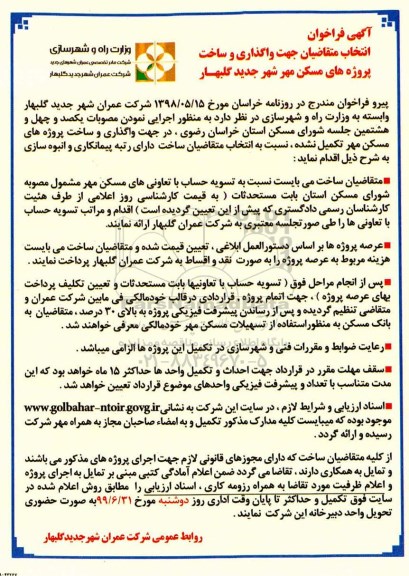 آگهی فراخوان
انتخاب متقاضیان جهت واگذاری و ساخت
پروژه های مسکن مهر شهر جدید گلبهار
وزارت راه و شهرسازی
شرکت عمران شهر جدید گلبهار
پیرو فراخوان مندرج در روزنامه خراسان مورخ ۱۳۹۸/۰۵/۱۵ شرکت عمران شهر جدید گلبهار
وابسته به وزارت راه و شهرسازی در نظر دارد به منظور اجرایی نمودن مصوبات یکصد و چهل و
هشتمین جلسه شورای مسکن استان خراسان رضوی ، در جهت واگذاری و ساخت پروژه های
مسکن مهر تکمیل نشده ، نسبت به انتخاب متقاضیان ساخت دارای رتبه پیمانکاری و انبوه سازی
به شرح ذیل اقدام نماید :
متقاضیان ساخت می بایست نسبت به تسویه حساب با تعاونی های مسکن مهر مشمول مصوبه
شورای مسکن استان بابت مستحدثات ( به قیمت کارشناسی روز اعلامی از طرف هیئت
کارشناسان رسمی دادگستری که پیش از این تعیین گردیده است ) اقدام و مراتب تسویه حساب
با تعاونی ها را طی صورتجلسه معتبری به شرکت عمران گلبهار ارائه نمایند.
عرصه پروژه ها بر اساس دستورالعمل ابلاغی ، تعیین قیمت شده و متقاضیان ساخت می بایست
هزینه مربوط به عرصه پروژه را به صورت نقد و اقساط به شرکت عمران گلبهار پرداخت نمایند .
پس از انجام مراحل فوق ( تسویه حساب با تعاونیها بابت مستحدثات و تعیین تکلیف پرداخت
بهای عرصه پروژه ) ، جهت اتمام پروژه ، قراردادی درقالب خودمالکی فی مابین شرکت عمران و
متقاضی تنظیم گردیده و پس از رساندن پیشرفت فیزیکی پروژه به بالای ۳۰ درصد ، متقاضیان به
بانک مسکن به منظور استفاده از تسهیلات مسکن مهر خودمالکی معرفی خواهند شد .
رعایت ضوابط و مقررات فنی و شهرسازی در تکمیل این پروژه ها الزامی میباشد .
سقف مهلت مقرر در قرارداد جهت احداث و تکمیل واحد ها حداکثر ۱۵ ماه خواهد بود که این
مدت متناسب با تعداد و پیشرفت فیزیکی واحدهای موضوع قرارداد تعیین خواهد شد .
اسناد ارزیابی و شرایط لازم ، در سایت این شرکت به نشانی www.golbahar-ntoir.govg.ir
موجود بوده که میبایست کلیه مدارک مذکور تکمیل و به امضاء صاحبان مجاز به همراه مهر شرکت
رسیده و ارائه گردد .
از کلیه متقاضیان ساخت که دارای مجوزهای قانونی لازم جهت اجرای پروژه های مذکور می باشند
و تمایل به همکاری دارند ، تقاضا می گردد ضمن اعلام آمادگی کتبی مبنی بر تمایل به اجرای پروژه
و اعلام ظرفیت مورد تقاضا به همراه رزومه کاری ، اسناد ارزیابی را مطابق روش اعلام شده در
سایت فوق تکمیل و حداکثر تا پایان وقت اداری روز دوشنبه مورخ ۹۹/۶/۳۱ به صورت حضوری
تحویل واحد دبیرخانه این شرکت نمایند .
روابط عمومی شرکت عمران شهر جدید گلبهار